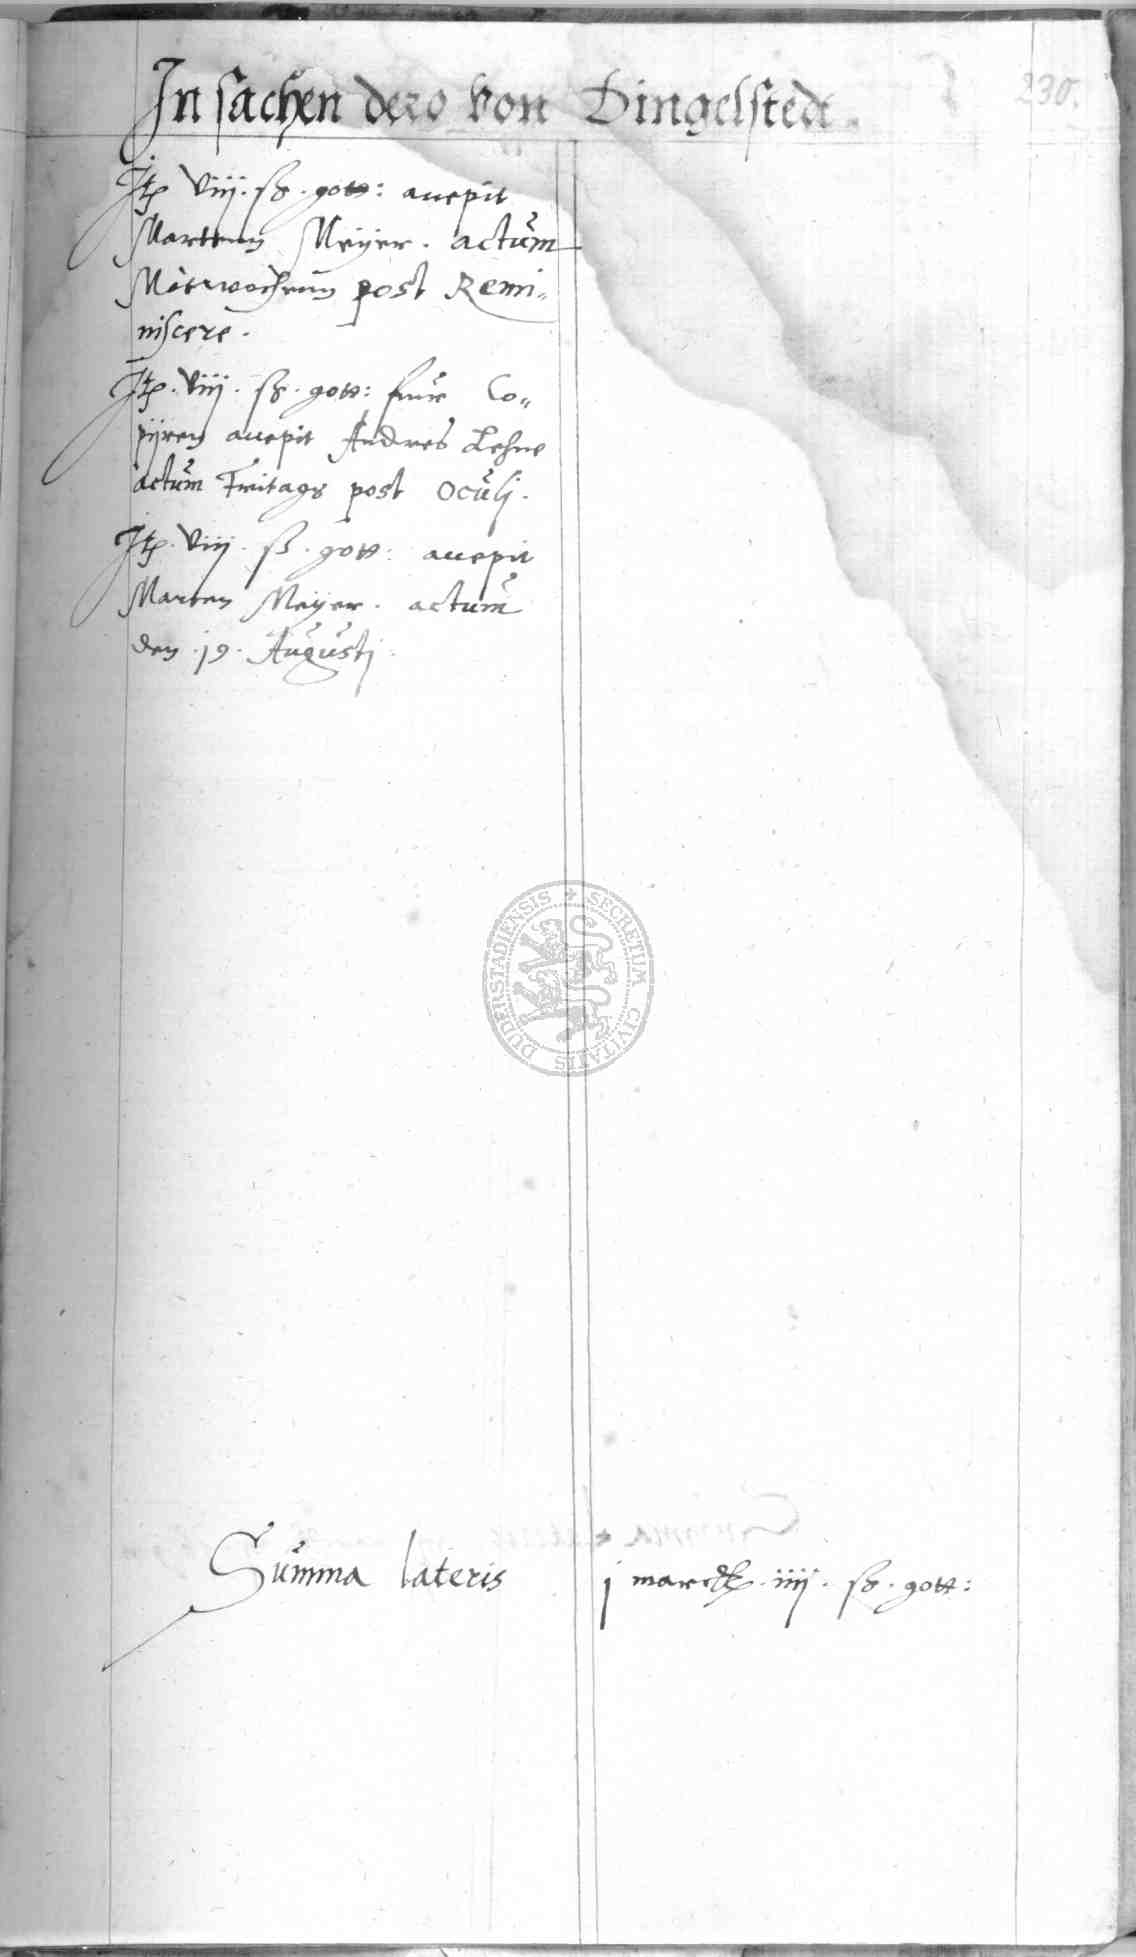 230.
In sachen dero von Dingelstedt.
Itp viij. ß. gott: accepit
Marten Meyer. actum
Mitwochenn post Remi-
niscere.
Itp. viij. ß. gott: fuur Co-
pijren accepit Andres Lehne
actum Fritags post Oculj.
Itp. viij. ß. gott: accepit
Marten Meyer. actum
den .19. Augustj.
SECRETUM CIVITATIS DUDERSTADIENSIS
Summa lateris j marck. iiij. ß. gott: